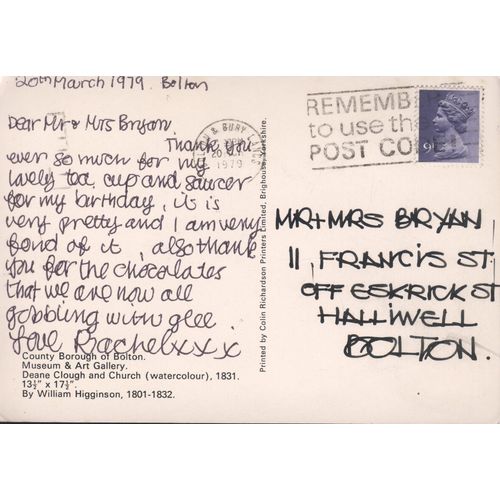 20th March 1979. Bolton
Dear Mr & Mrs Bryan,
Thank you
ever so much for my
lovely tea cup and saucer
for my birthday, it is
very pretty and I am very
fond of it, also thank
you for the chocolates
that we are now all
gobbling with glee.
Love Rachel x x x
County Borough of Bolton.
Museum & Art Gallery.
Deane Clough and Church (watercolour), 1831.
13½" x 17½".
By William Higginson, 1801-1832.
Printed by Colin Richardson Printers Limited, Brighouse, Yorkshire.
& BURY
20
1979
REMEMB
to use th
POST CO
9P
MR + MRS BRYAN
11, FRANCIS ST.
OFF ESKRICK ST
HALLIWELL
BOLTON.